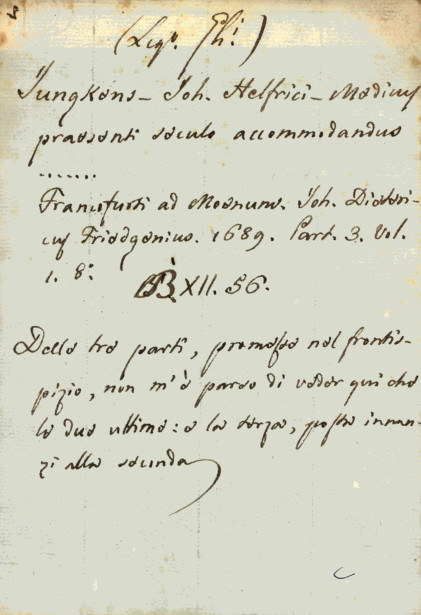 (Leg.º Ph.i)
Jungkens - Joh. Helfrici - Medicus
praesenti seculo accommodandus
.......
Francofurti ad Moenum. Joh. Dieteri-
cus Friedgenius. 1689. Part. 3. Vol.
1. 8.º
B. XII. 56.
Delle tre parti, promesse nel frontis-
pizio, non m'è parso di veder qui che
le due ultime: e la terza, posta innan-
zi alla seconda